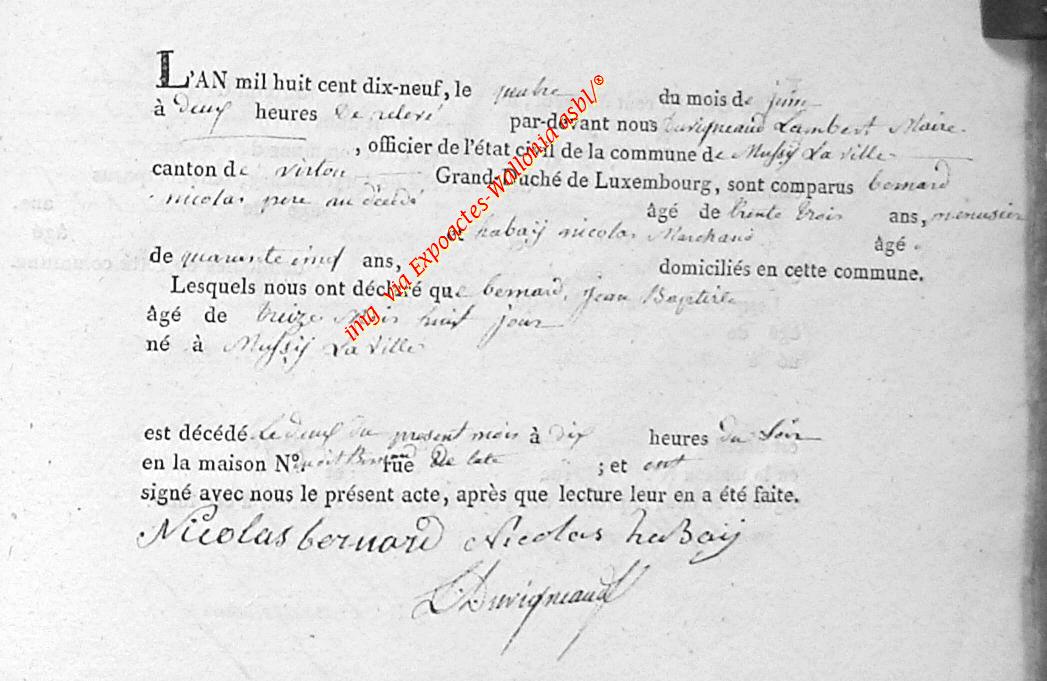 L'AN mil huit cent dix-neuf, le quatre du mois de juin
à deux heures de relevé par-devant nous Duvigneaud Lambert Maire
, officier de l'état civil de la commune de Mussy La ville
canton de virton Grand-Duché de Luxembourg, sont comparus bernard
nicolas pere au décédé âgé de trente trois ans, menusier
et habaÿ nicolas Marchand âgé
de quarante ans, domiciliés en cette commune.
Lesquels nous ont déclaré que bernard Jean Baptiste
âgé de treize Mois huit jour
né à Mussÿ La ville
est décédé le deux du present mois à dix heures du Soir
en la maison N.o rue de ; et ont
signé avec nous le présent acte, après que lecture leur en a été faite.
Nicolas bernard Nicolas haBaÿ
L Duvigneaud
img via Expoactes-Wallonia asbl/®